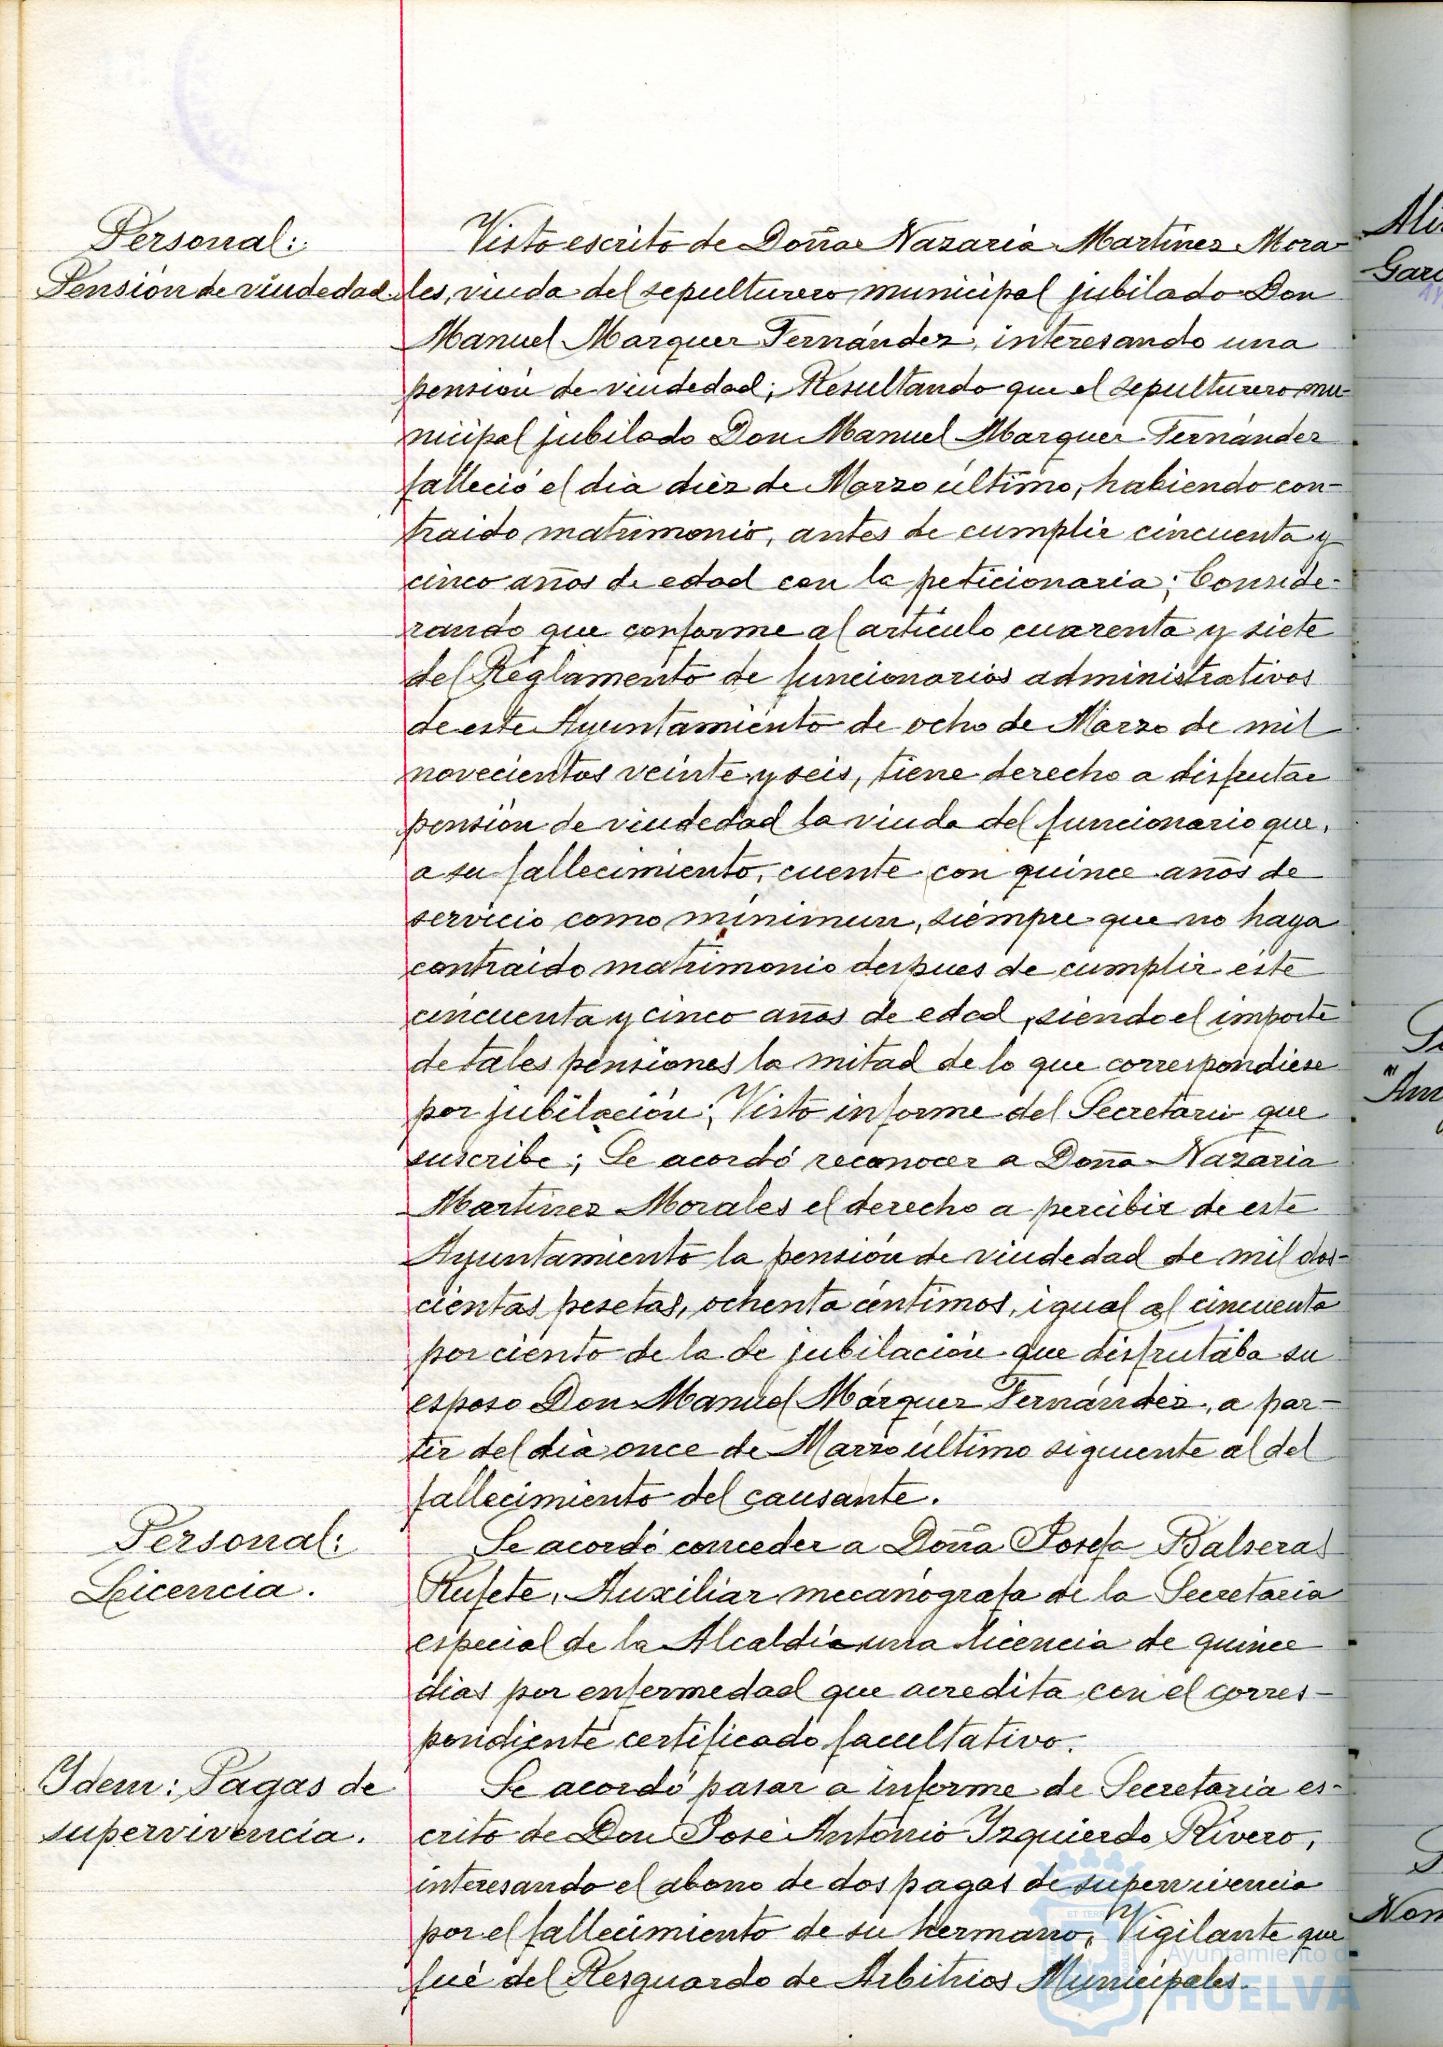 Personal:
Pensión de viudedad.
Visto escrito de Doña Nazaria Martínez Mora-
les, viuda del sepulturero municipal jubilado Don
Manuel Marquez Fernández, interesando una
pensión de viudedad; Resultando que el sepulturero mu-
nicipal jubilado Don Manuel Marquez Fernández
falleció el día diez de Marzo último, habiendo con-
traido matrimonio, antes de cumplir cincuenta y
cinco años de edad con la peticionaria; Conside-
rando que conforme al artículo cuarenta y siete
del Reglamento de funcionarios administrativos
de este Ayuntamiento de ocho de Marzo de mil
novecientos veinte y seis, tiene derecho a disfrutar
pensión de viudedad la viuda del funcionario que,
a su fallecimiento, cuente con quince años de
servicio como minimun, siempre que no haya
contraido matrimonio despues de cumplir éste
cincuenta y cinco años de edad, siendo el importe
de tales pensiones la mitad de lo que correspondiese
por jubilación; Visto informe del Secretario que
suscribe; Se acordó reconocer a Doña Nazaria
Martínez Morales el derecho a percibir de este
Ayuntamiento la pensión de viudedad de mil dos-
cientas pesetas, ochenta céntimos, igual al cincuenta
por ciento de la de jubilación que disfrutaba su
esposo Don Manuel Márquez Fernández, a par-
tir del día once de Marzo último siguiente al del
fallecimiento del causante.
Personal:
Licencia.
Se acordó conceder a Doña Josefa Balsera
Rufete, Auxiliar mecanógrafa de la Secretaria
especial de la Alcaldía una licencia de quince
dias por enfermedad que acredita con el corres-
pondiente certificado facultativo.
Idem: Pagas de
supervivencia.
Se acordó pasar a informe de Secretaria es-
crito de Don José Antonio Yzquierdo Rivero,
interesando el abono de dos pagas de supervivencia
por el fallecimiento de su hermano, Vigilante que
fué del Resguardo de Arbitrios Municipales.
Ayuntamiento de
HUELVA